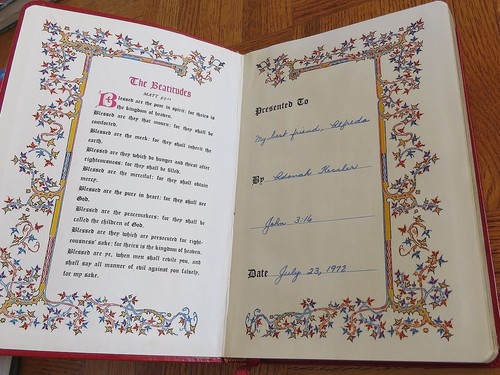 The Beatitudes
MATT 5:1-11
Blessed are the poor in spirit: for theirs is
the kingdom of heaven.
Blessed are they that mourn: for they shall be
comforted.
Blessed are the meek: for they shall inherit the
earth.
Blessed are they which be hunger and thirst after
righteousness: for they shall be filled.
Blessed are the merciful: for they shall obtain
mercy.
Blessed are the pure in heart: for they shall see
God.
Blessed are the peacemakers: for they shall be
called the children of God.
Blessed are they which are persecuted for right-
eousness' sake: for theirs is the kingdom of heaven.
Blessed are ye, when men shall revile you, and
shall say all manner of evil against you falsely,
for my sake.
Presented To
My best friend, Alfreda
By
John 3:16
Date July 23, 1972